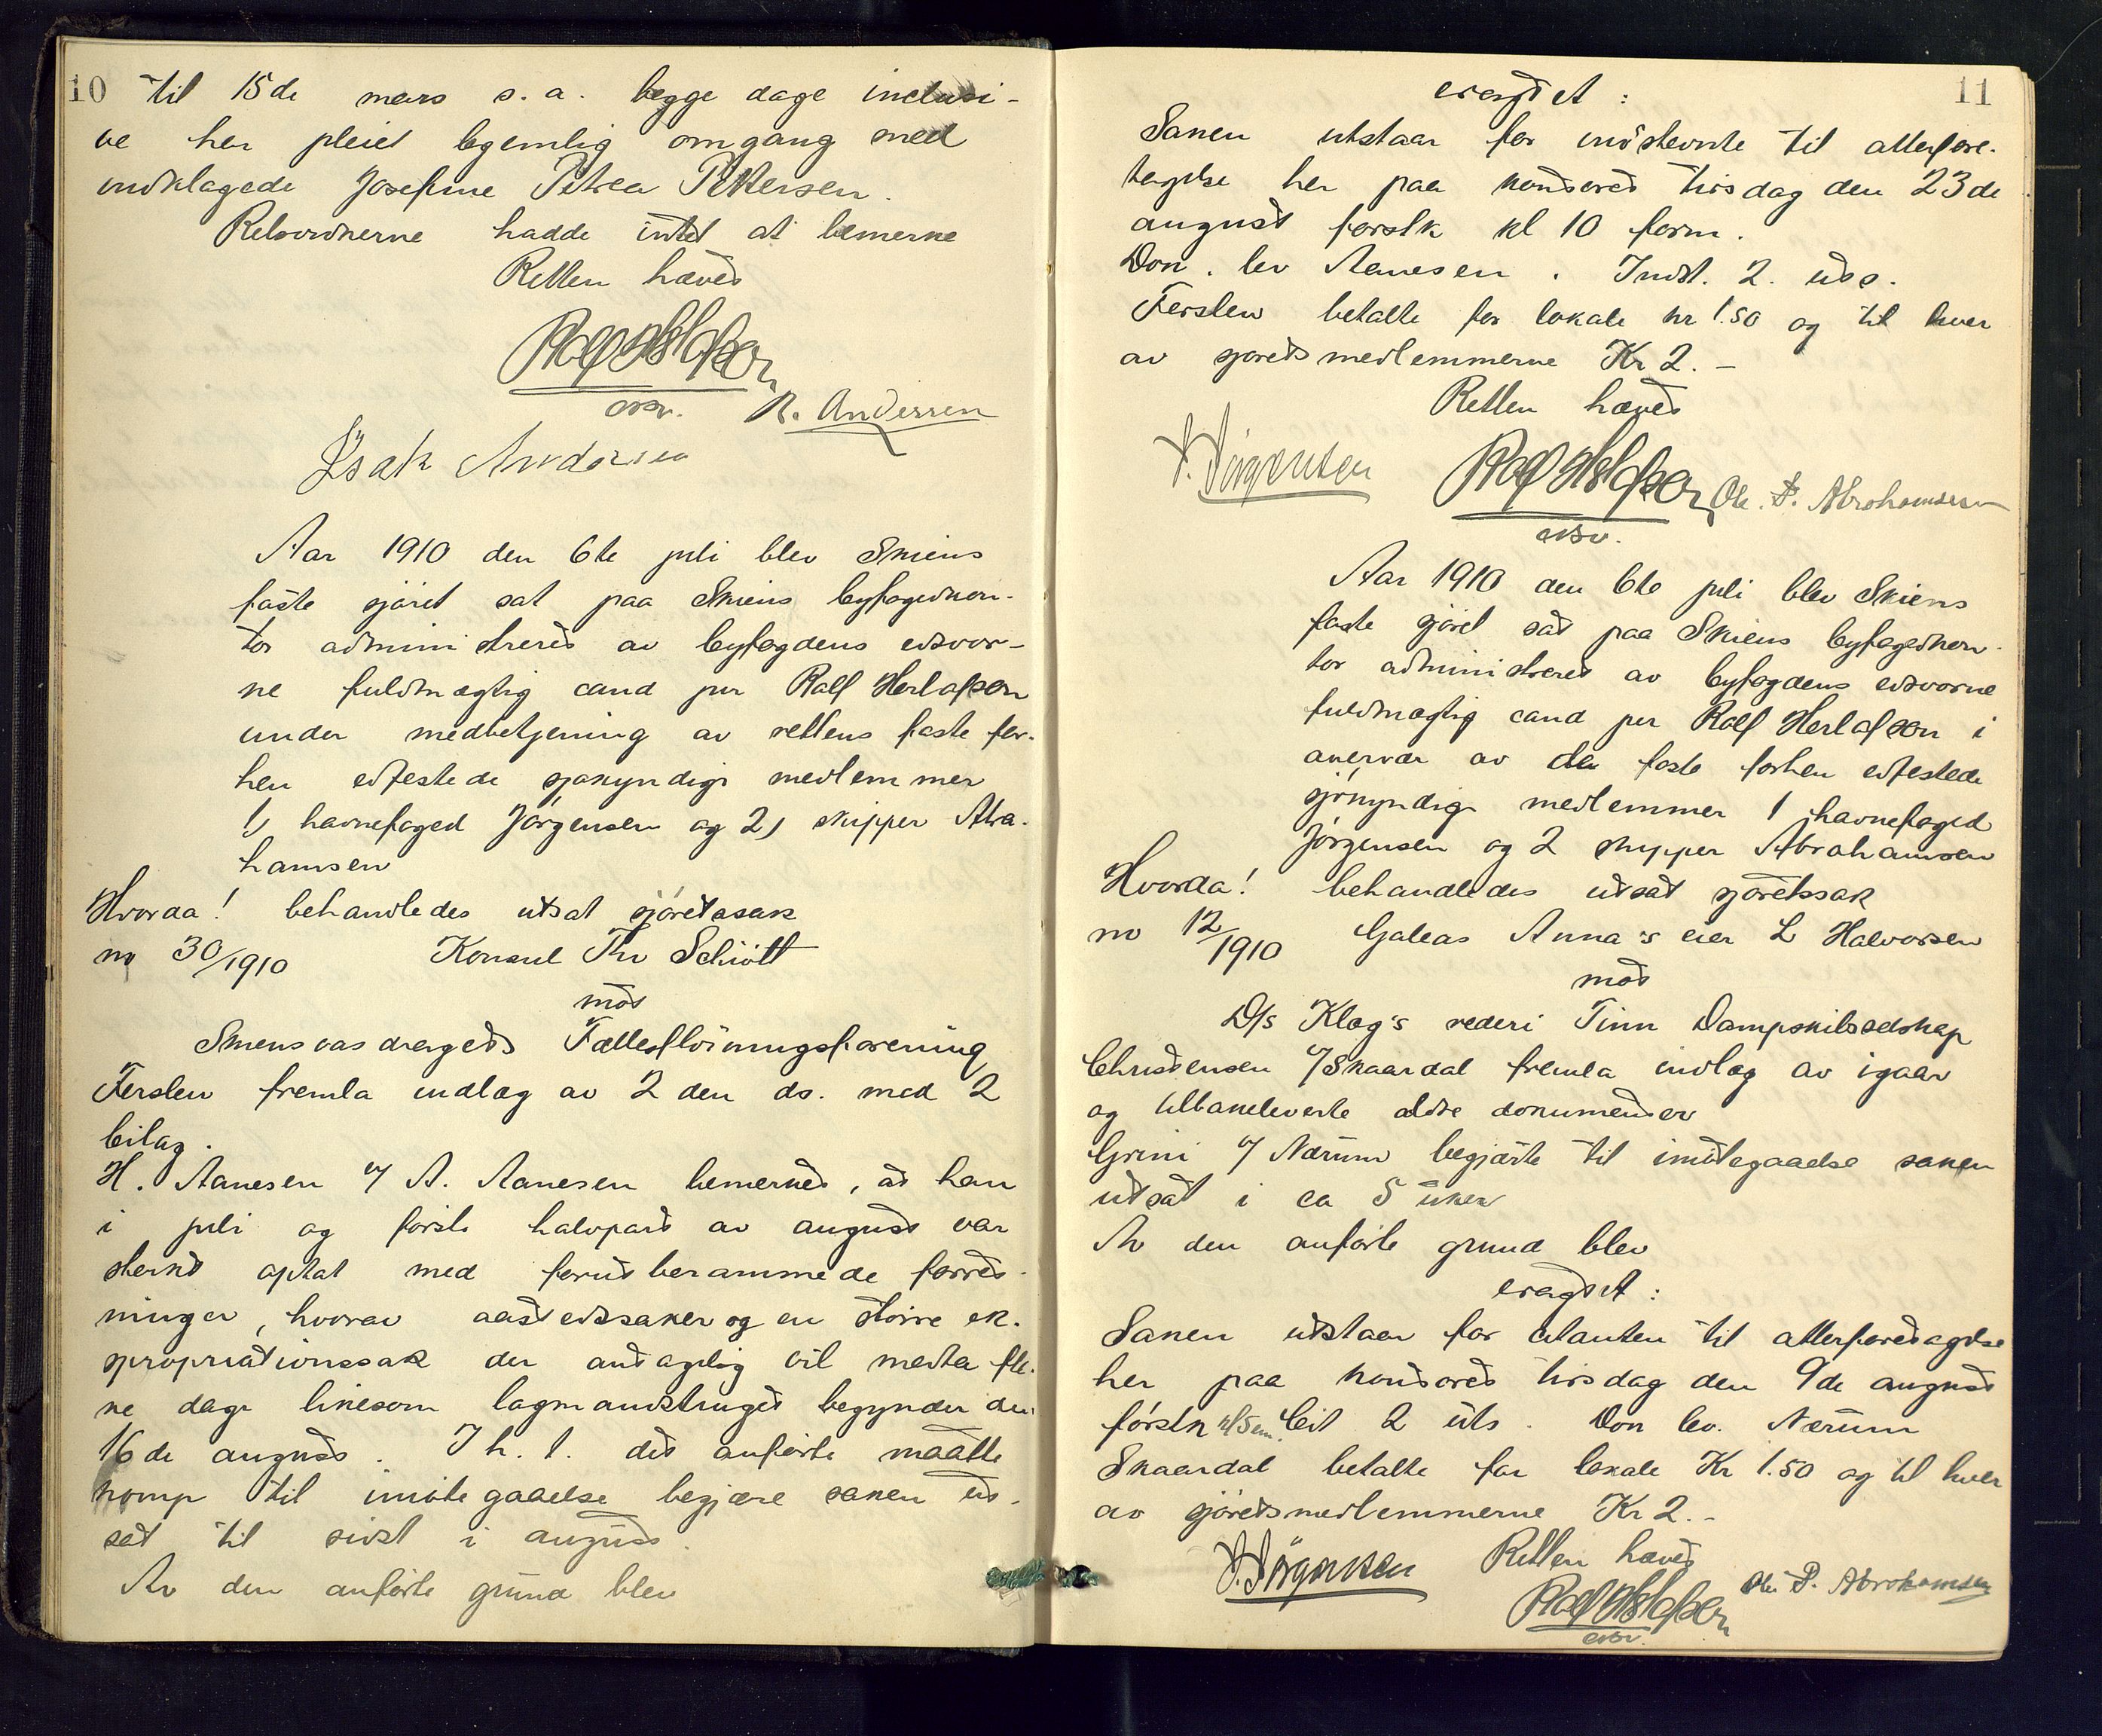 10 til 15de mars s. a. begge dage inclusi-
ve har pleiet legemlig omgang med
indklagede Josefine Petrea Pettersen.
Retsvidnerne hadde intet at bemerke
Retten hævet
Rolf Herlofson
edsv. R. Andersen
Isak Andersen
Aar 1910 den 6te juli blev Skiens
faste sjöret sat paa Skiens byfogedkon-
tor administreret av byfogdens edsvor-
ne fuldmægtig cand jur Rolf Herlofson
under medbetjening av rettens faste for-
hen edfestede sjökyndige medlemmer
1) havnefoged Jörgensen og 2) skipper Abra-
hamsen
Hvorda! behandledes utsat sjöretssak
no 30/1910 Konsul Thv Schiött
mot
Skiensvasdragets Fællesflötningsforening
Ferslew fremla indlæg av 2den ds. med 2
bilag.
H. Aanesen o/ A. Aanesen bemerket, at han
i juli og förste halvpart av august var
sterkt optat med forutberammede forret-
ninger, hvorav aastedssaker og en större ek-
spropriationssak der antagelig vil medta fle-
re dage likesom lagmandstinget begynder den
16de august. I h. t. det anförte maatte
komp til imötegaaelse begjære saken ut-
sat til sidst i august.
Av den anförte grund blev
11
eragtet:
Saken utstaar for indstevnte til atterfore-
tagelse her paa kontoret tirsdag den 23de
august förstk kl 10 form.
Dok. lev Aanesen. Indst. 2. uts.
Ferslew betalte for lokale kr 1.50 og til hver
av sjöretsmedlemmerne Kr 2.-
Retten hævet
J. Jörgensen Rolf Herlofson Ole. P. Abrahamsen
edsv.
Aar 1910 den 6te juli blev Skiens
faste sjöret sat paa Skiens byfogedkon-
tor administreret av byfogdens edsvorne
fuldmægtig cand jur Rolf Herlofson i
overvær av de faste forhen edfestede
sjökyndige medlemmer 1 havnefoged
Jörgensen og 2 skipper Abrahamsen
Hvorda! behandledes utsat sjöretssak
no 12/1910 Galeas Anna's eier L Halvorsen
mot
D/s Klog's rederi Tinn Dampskibsselskap
Christensen o/ Skaardal fremla indlæg av igaar
og tilbakeleverte aldre dokumenter
Grini o/ Nærum begjærte til imötegaaelse saken
utsat i ca 5 uker
Av den anförte grund blev
eragtet:
Saken utstaar for citanten til atterforetagelse
her paa kontoret tirsdag den 9de august
förstk kl 5 em. Cit 2 uts. Dok lev. Nærum
Skaardal betalte for lokale Kr 1.50 og til hver
av sjöretsmedlemmerne Kr 2.-
Retten hævet
J. Jörgensen Rolf Herlofson Ole P. Abrahamsen
edsv.